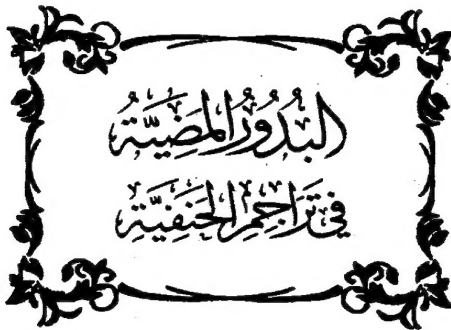 البُدُورُ المُضِيَّةُ
فِي تَرَاجِمِ الحَنَفِيَّةِ